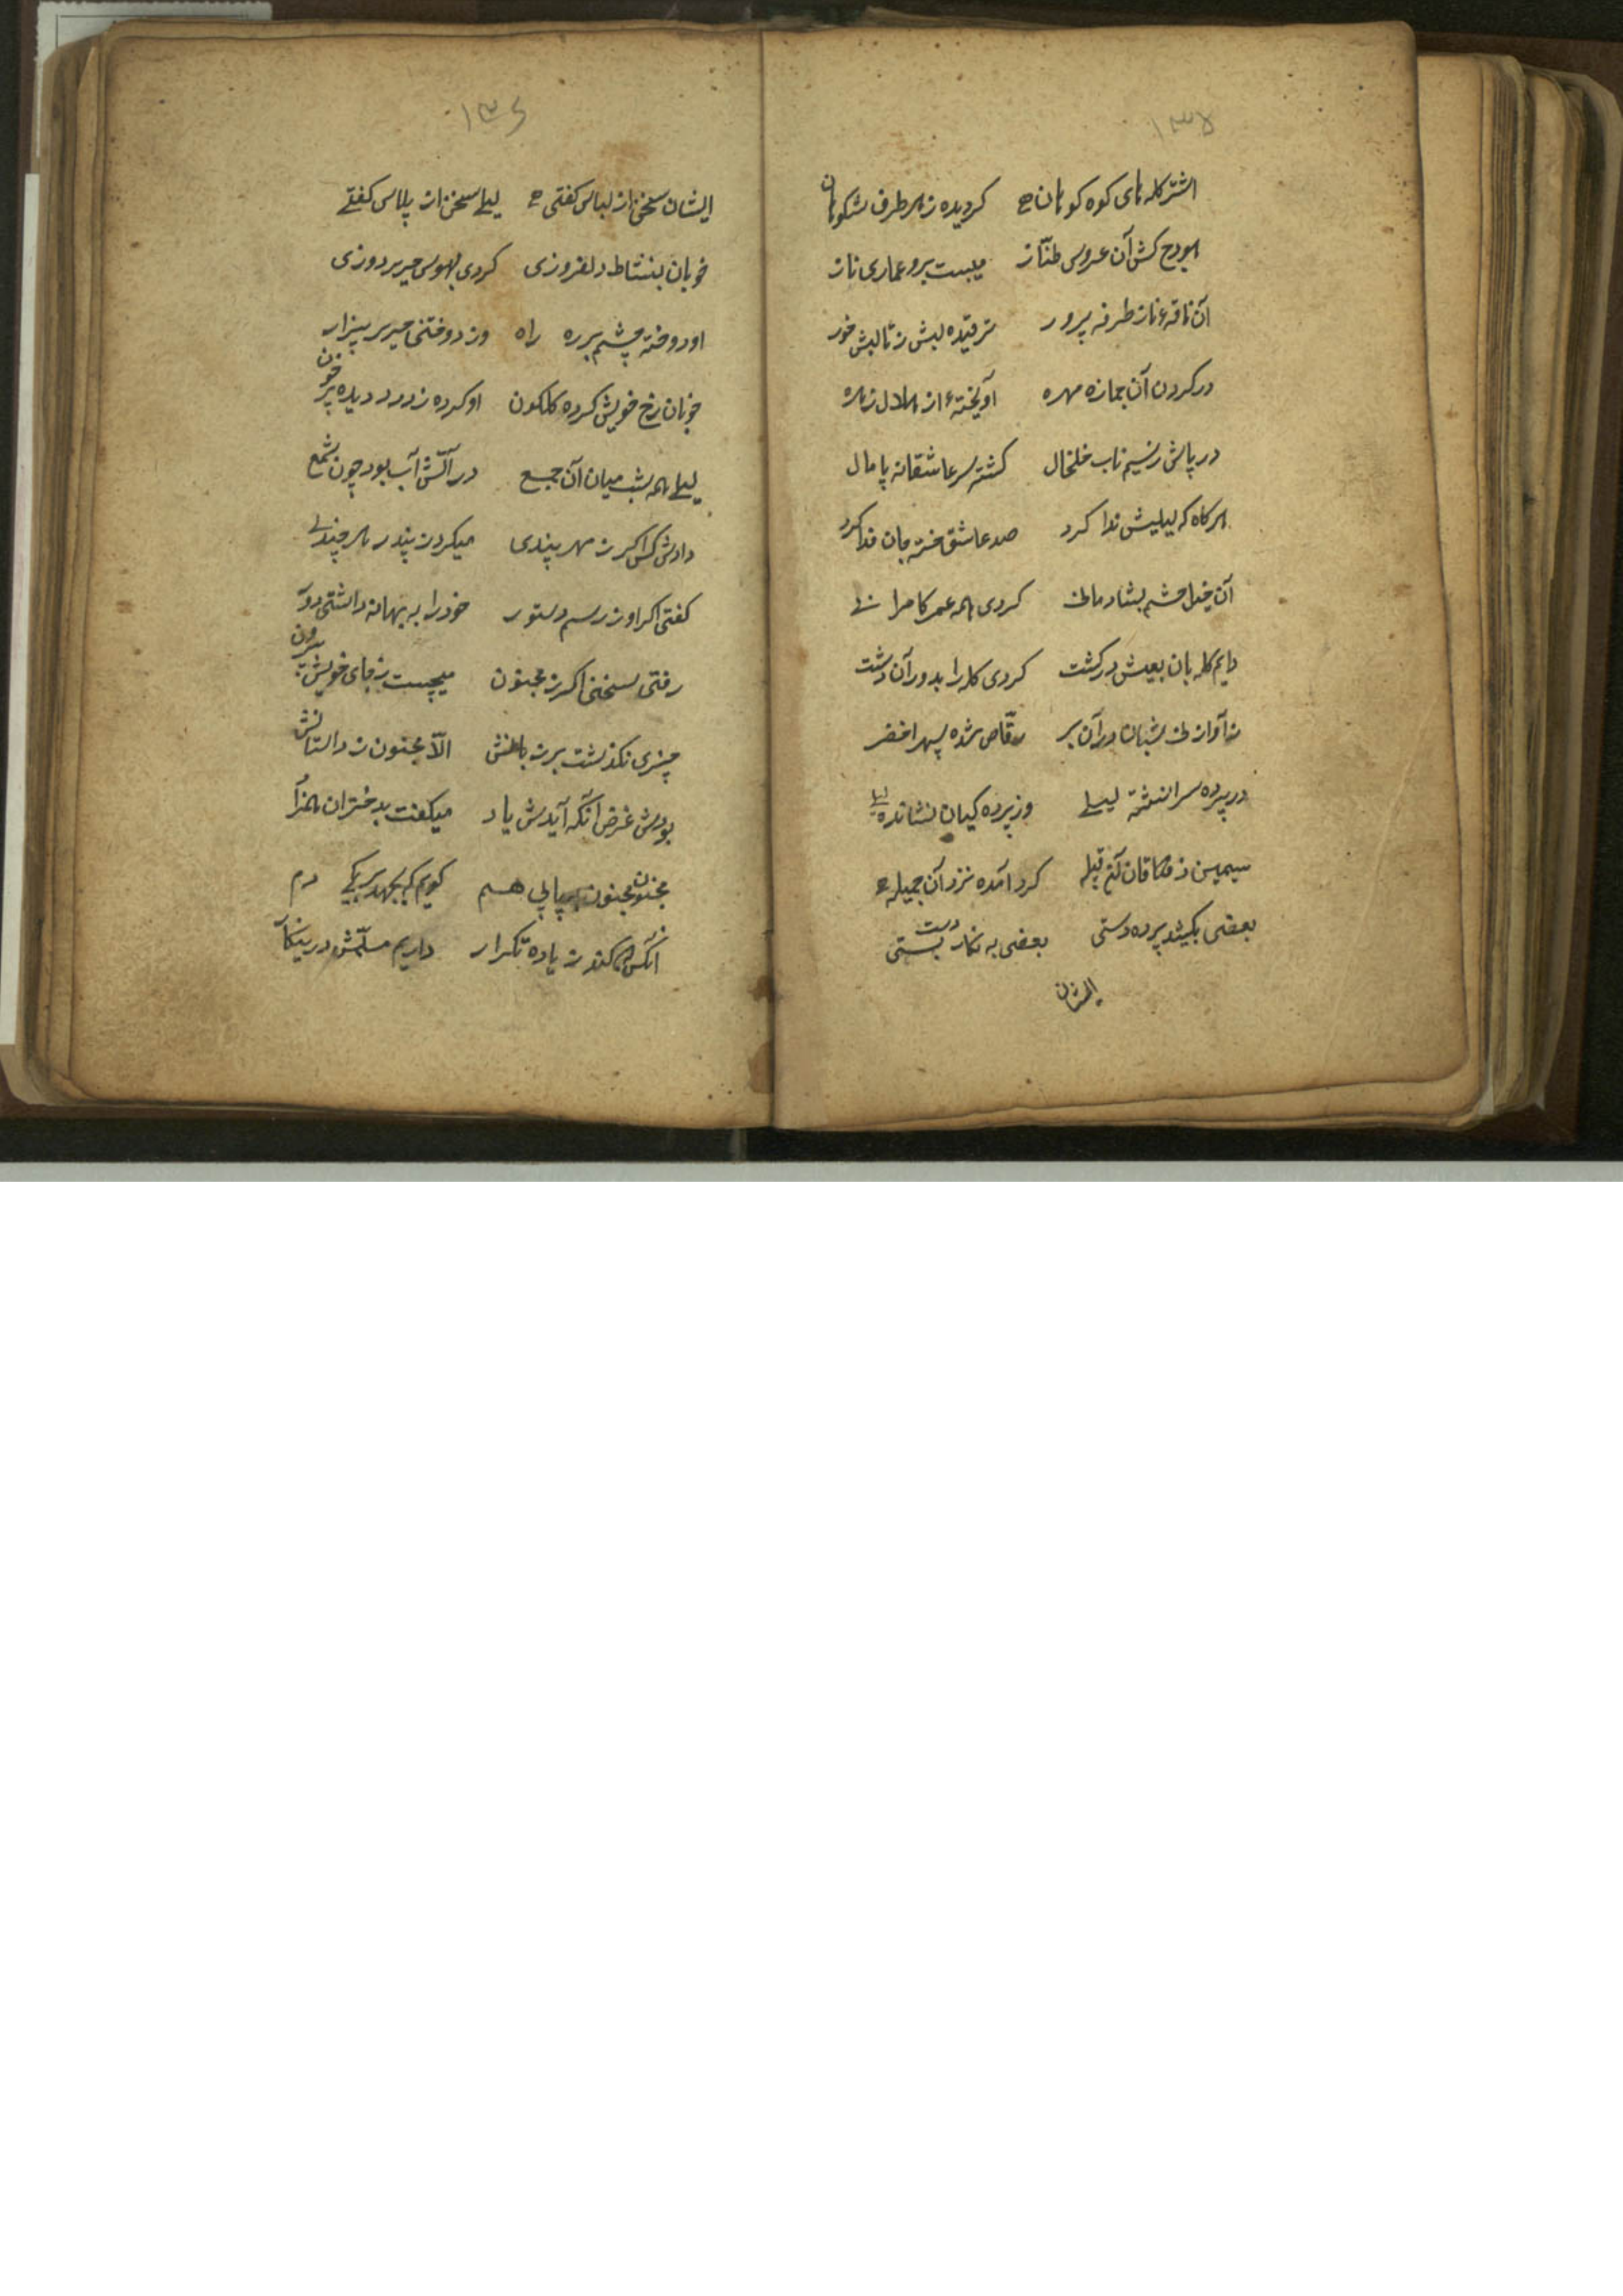 ۱۳۵
اشتر کله های کوه کوهان کردیده ز هر طرف شکوهان
هودج کش آن عروس طناز میبست برو عماری ناز
آن ناقهٔ ناز طرفه پرور ترقیده لبش ز تالبش خور
در کردن آن جمازه مهره آویختهٔ از هلال زهره
در پاش ز سیم ناب خلخال کشته سر عاشقانه پامال
هر کاه که لیلیش ندا کرد صد عاشق خسته جان فدا کرد
آن خیل و حشم بشادمانی کردی همه عمر کامرانی
دایم کله بان بعیش در کشت کردی کله را بدور آن دشت
ز آواز نی شبان در آن بر رقاص شده سپهر اخضر
در پرده سرا نشسته لیلی وز پرده کیان نشانده خیلی
سیمین ذقنان آن قبیله کرد آمده نزد آن جمیله
بعضی بکشید پرده دستی بعضی به نکار دست بستی
ایشان
۱۳۶
ایشان سخن از لباس کفتی لیلی سخن از پلاس کفتی
خوبان بنشاط دلفروزی کردی بهوس حریر دوزی
او دوخته چشم بر ره راه وز دوختن حریر بیزار
خوبان رخ خویش کرده کلکون او کرده ز درد دیده پر خون
لیلی همه شب میان آن جمع در آتش آب بود چون شمع
دادش کس اکر ز مهر پندی میکرد ز پند زهر چندی
کفتی اکر او ز رسم دستور خود را به بهانه داشتی دور
رفتی سخنی اکر ز مجنون میجست ز جای خویش بیرون
چیزی نکذشت بر زبانش الا مجنون ز داستانش
بودش غرض آنکه آیدش یاد میکفت بدختران همزاد
مجنون مجنون پیاپی هم کویم که بجهد بر یکی دم
آنکس که کند زیاده تکرار داریم مسلمش درین کار